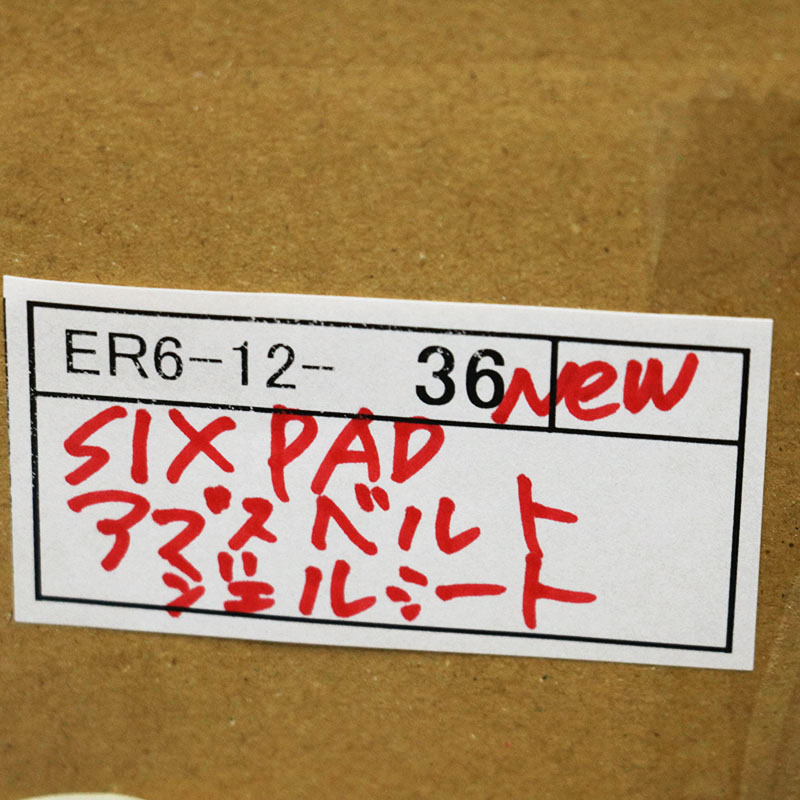 ER6-12-- 36 New
SIX PAD
アブズベルト
ジェルシート